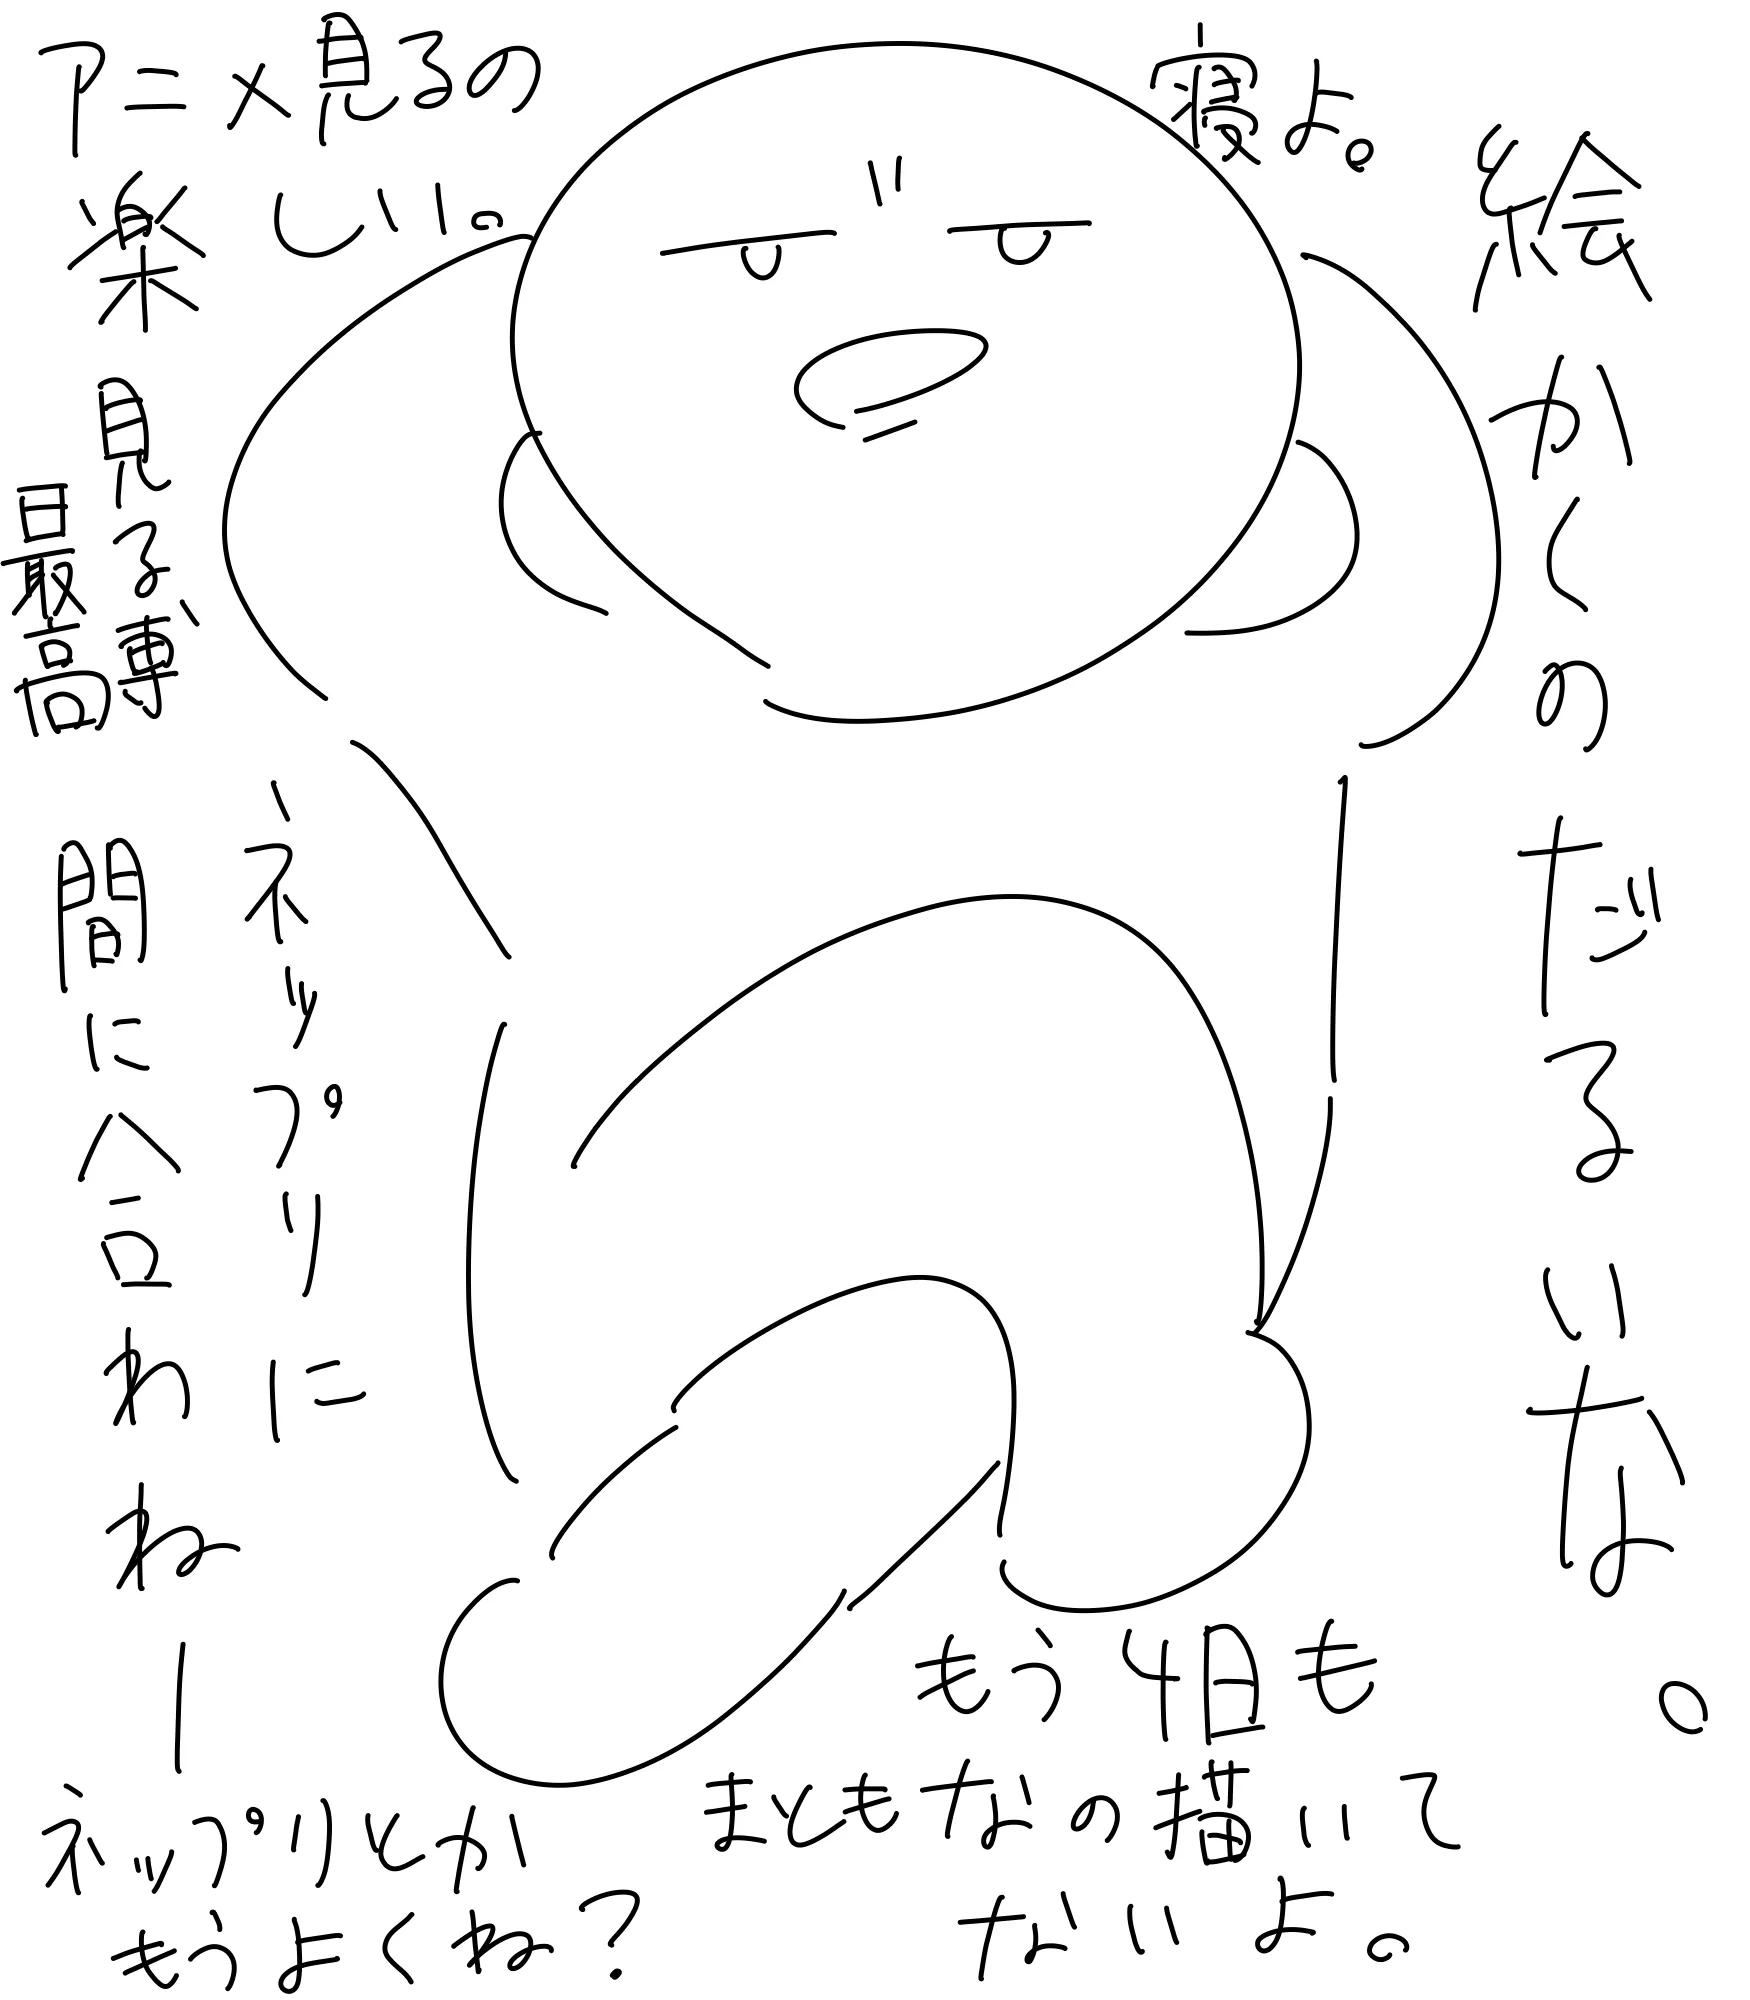 アニメ見るの
楽しい。
寝よ。
絵かくのだるいな。
見る専
最高
ネップリに
間に合わねー
もう4日も
まともなの描いて
ないよ。
ネップリとか
もうよくね？